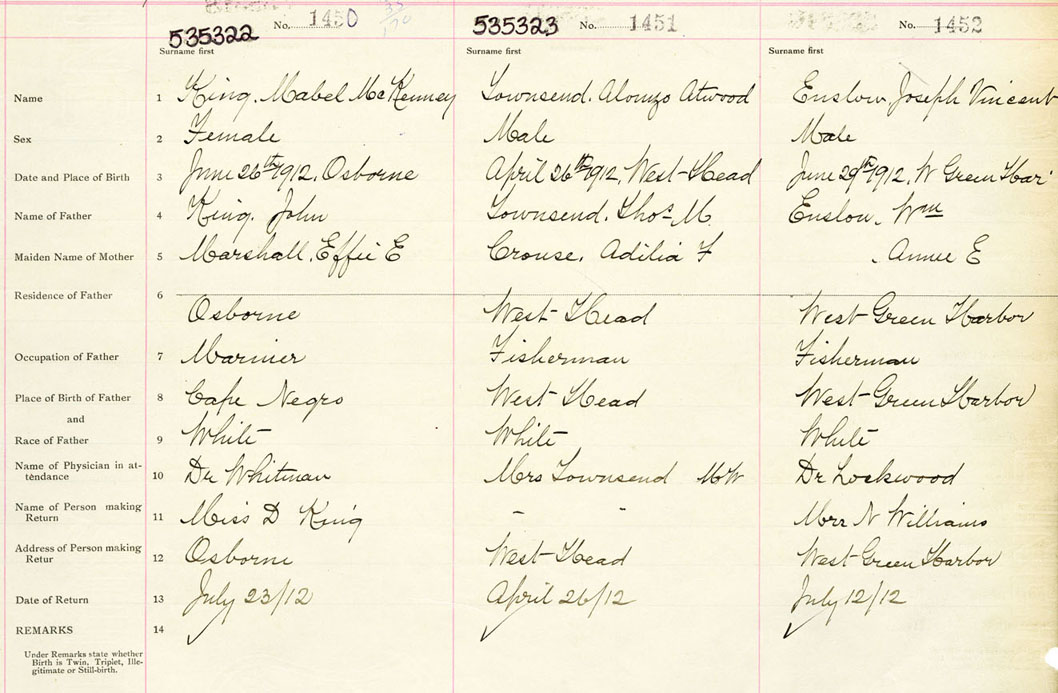 535322 No. 1450 535323 No. 1451 No. 1452
Surname first Surname first Surname first
Name 1 King, Mabel McKenney Townsend, Alonzo Atwood Enslow, Joseph Vincent
Sex 2 Female Male Male
Date and Place of Birth 3 June 26th 1912, Osborne April 26th 1912, West Head June 29th 1912, W Green Har
Name of Father 4 King, John Townsend, Thos M. Enslow, Wm
Maiden Name of Mother 5 Marshall, Effie E Crouse, Adilia F , Annie E
Residence of Father 6 Osborne West Head West Green Harbor
Occupation of Father 7 Mariner Fisherman Fisherman
Place of Birth of Father 8 Cape Negro West Head West Green Harbor
and
Race of Father 9 White White White
Name of Physician in at-
tendance 10 Dr Whitman Mrs Townsend MW Dr Lockwood
Name of Person making
Return 11 Miss D King " " Mrs N Williams
Address of Person making
Retur 12 Osborne West Head West Green Harbor
Date of Return 13 July 23/12 April 26/12 July 12/12
REMARKS 14
Under Remarks state whether
Birth is Twin, Triplet, Ille-
gitimate or Still-birth.